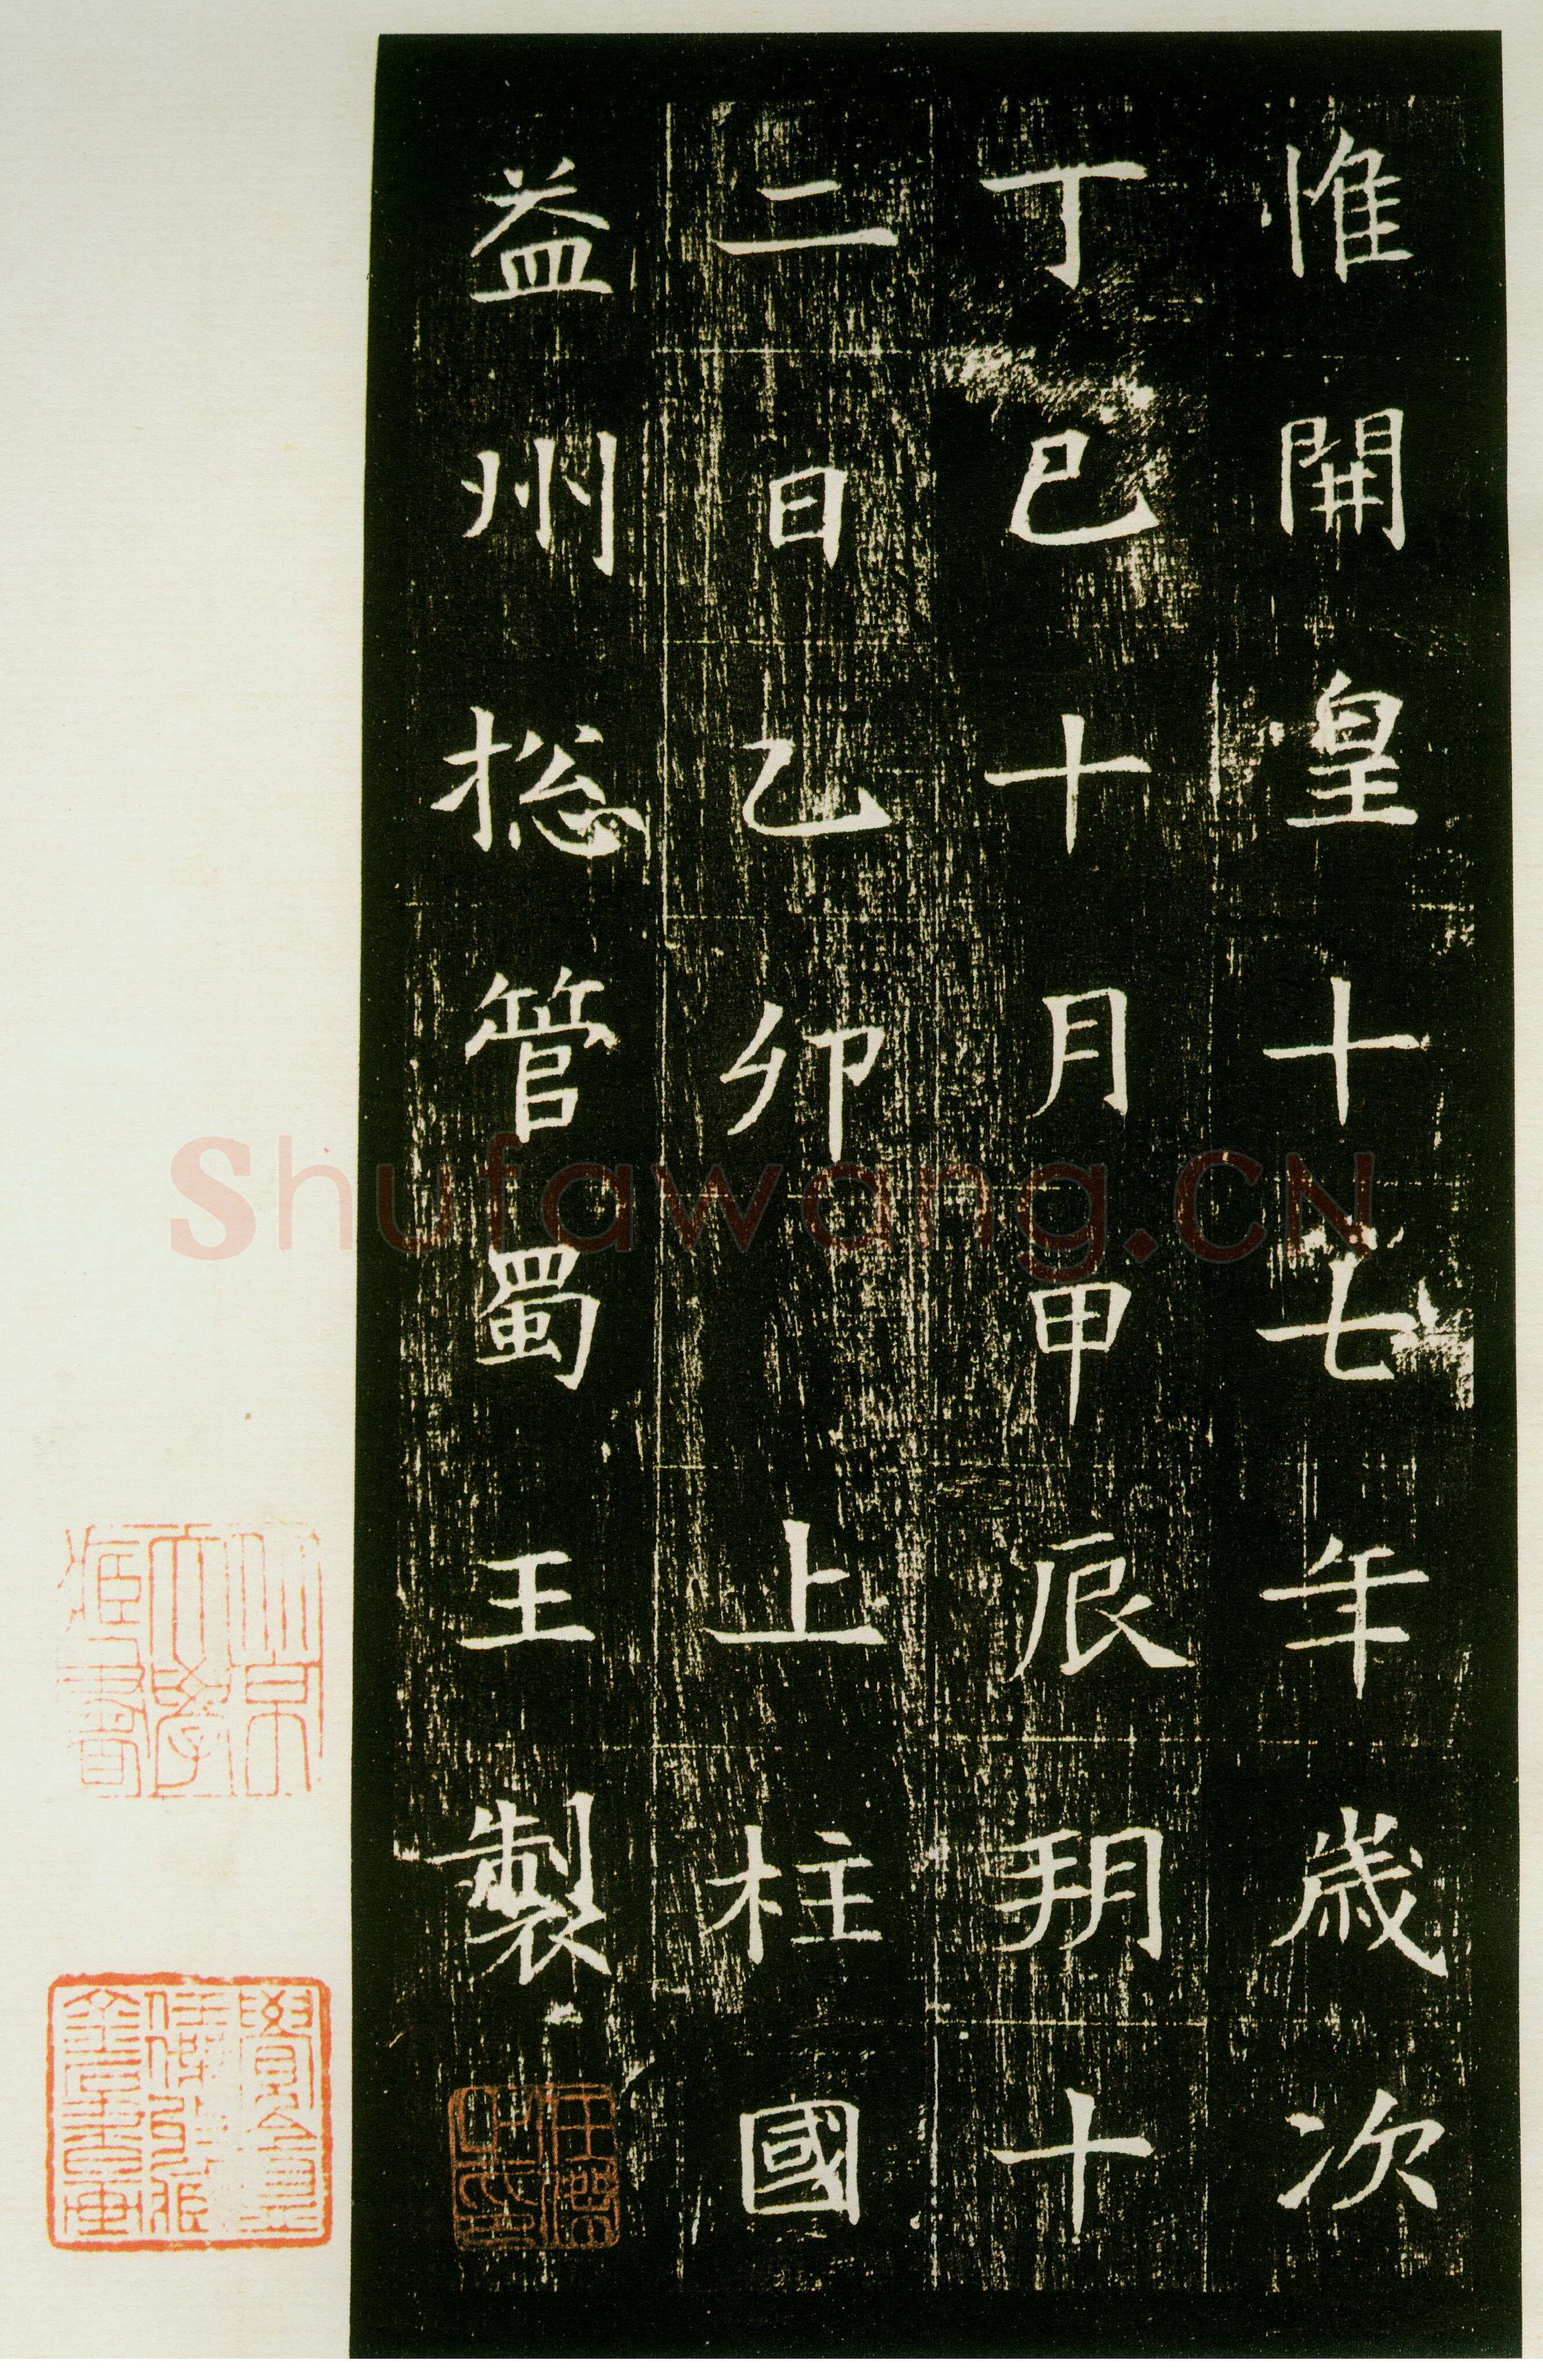 惟開皇十七年歳次
丁巳十月甲辰朔十
二日乙卯上柱國
益州捴管蜀王製
Shufawang.CN